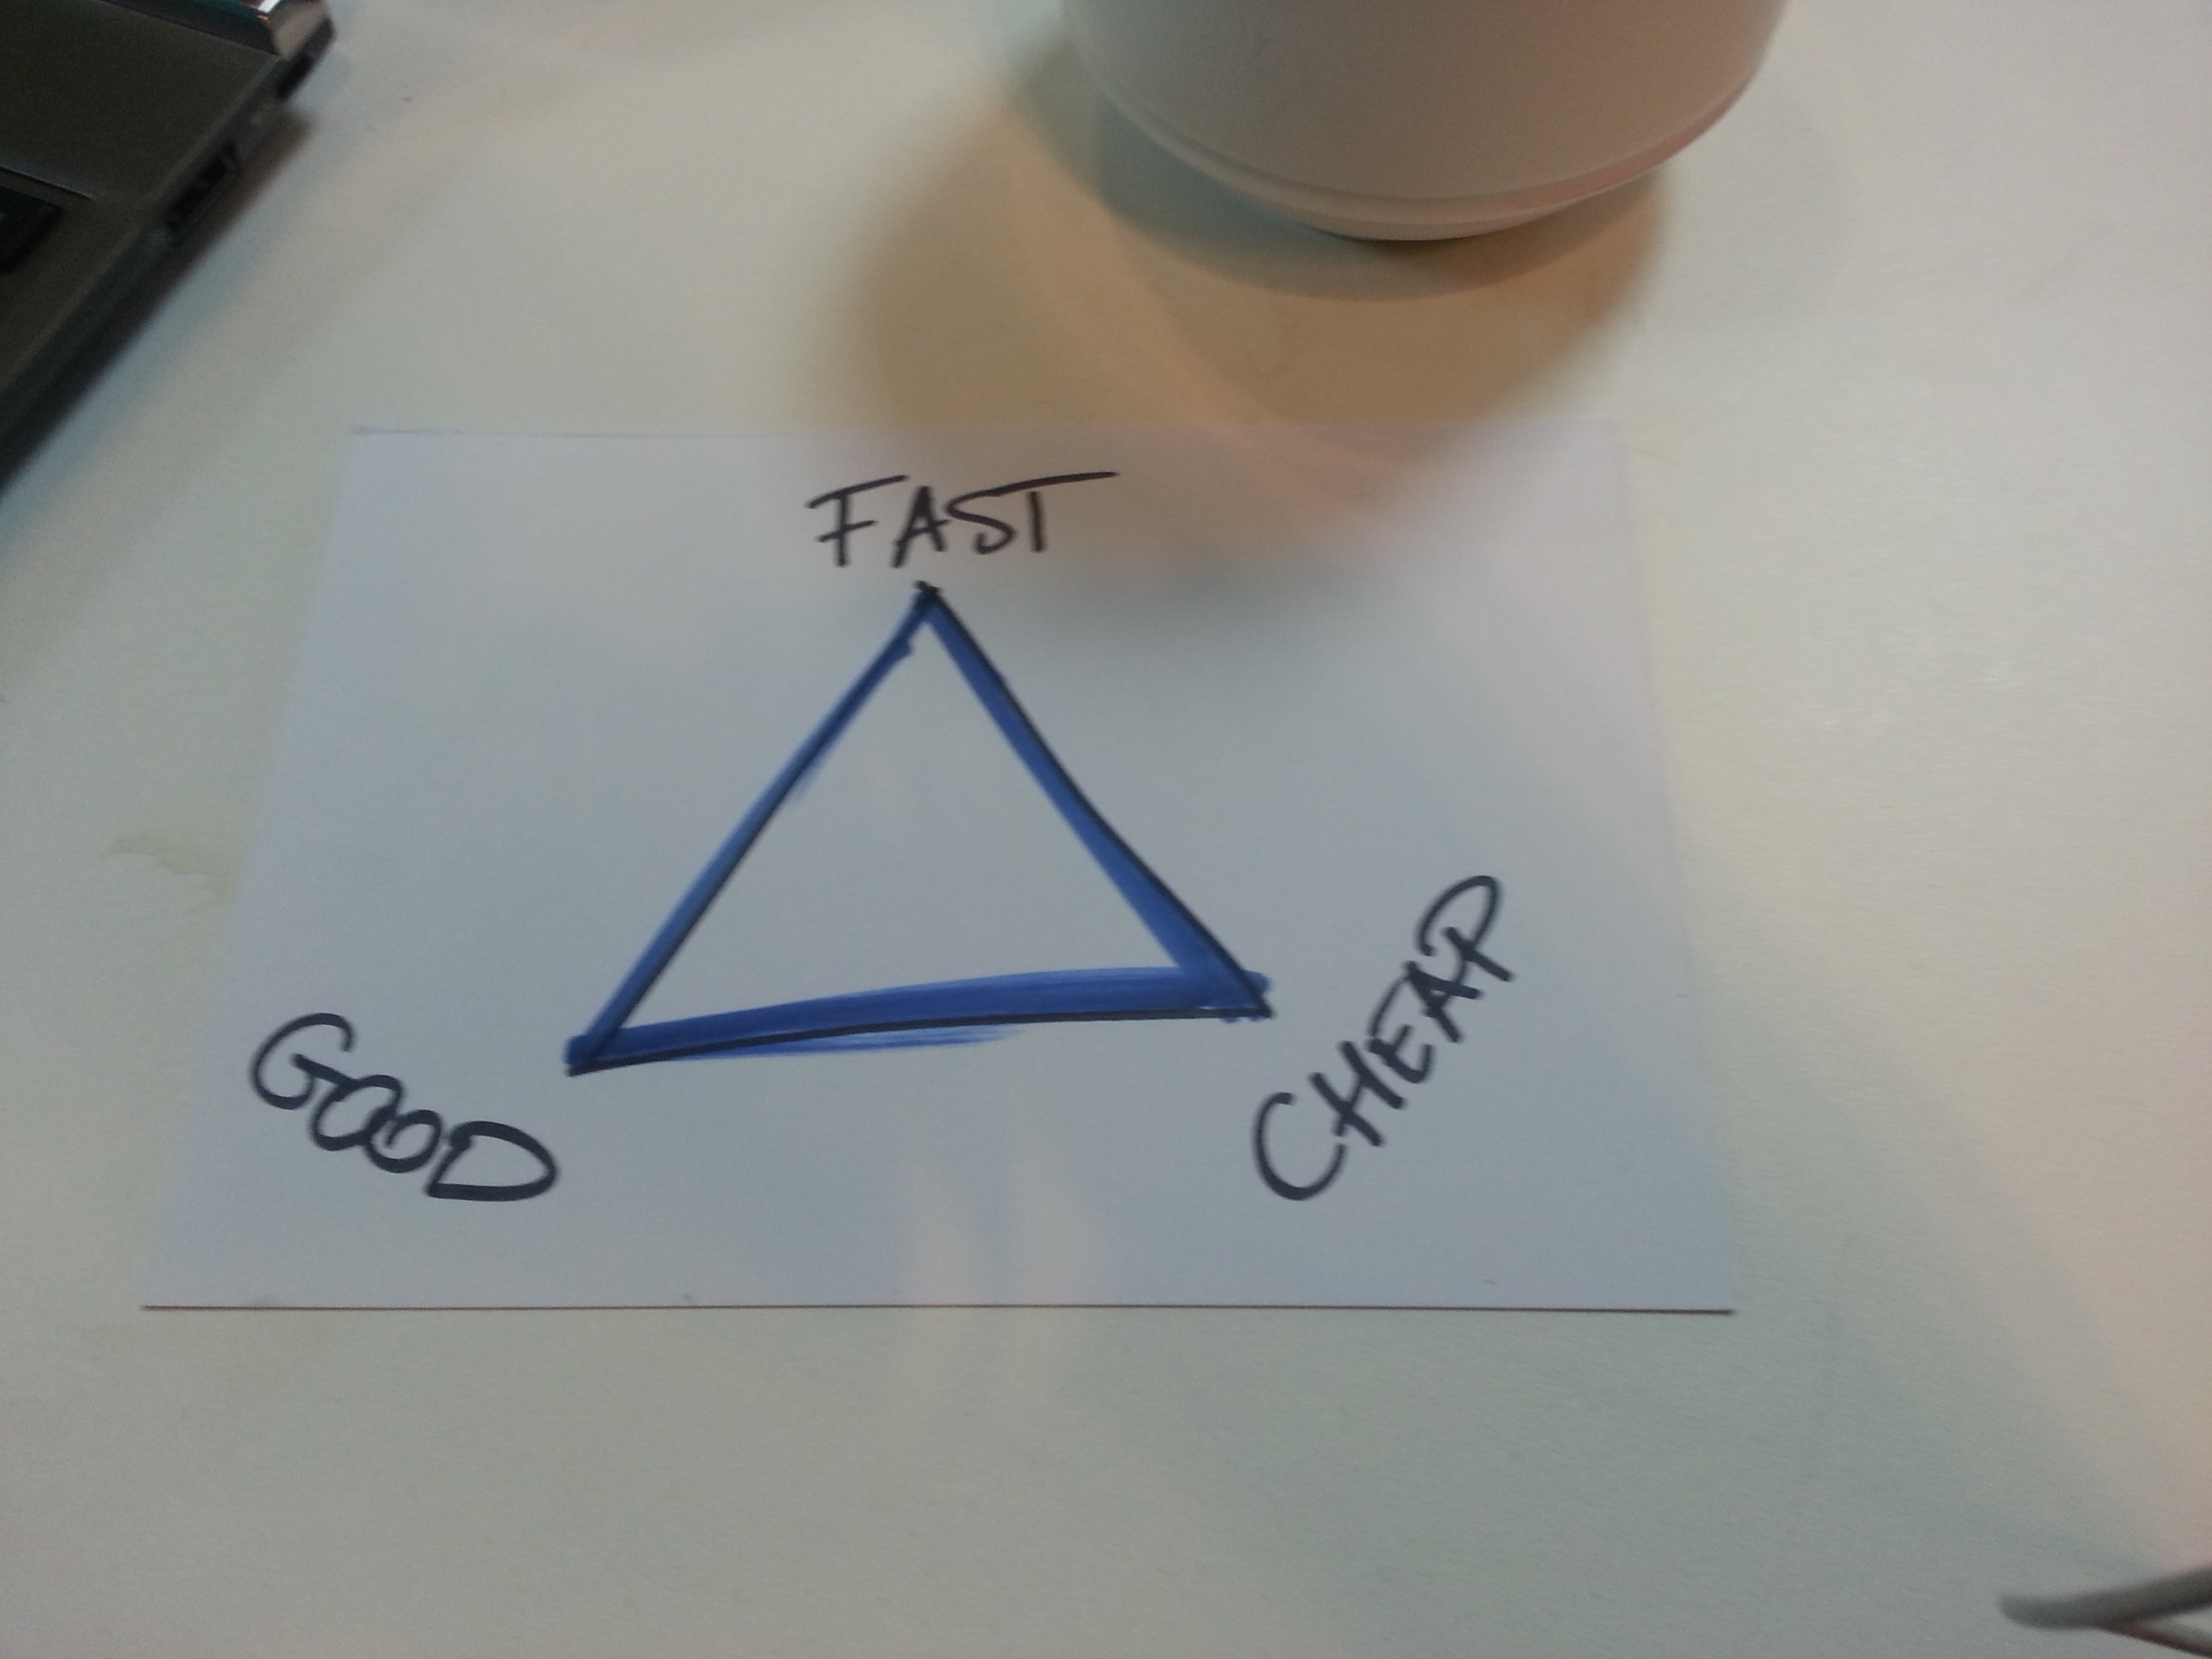 FAST
GOOD
CHEAP